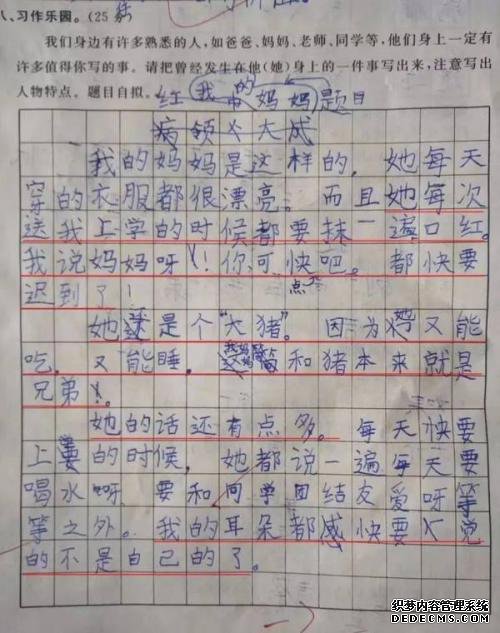 八、习作乐园。(25分)
我们身边有许多熟悉的人,如爸爸、妈妈、老师、同学等,他们身上一定有
许多值得你写的事。请把曾经发生在他(她)身上的一件事写出来,注意写出
人物特点。题目自拟。
我的妈妈 题目
大成
我的妈妈是这样的,她每天
穿的衣服都很漂亮。而且她每次
送我上学的时候都要抹一遍口红。
我说妈妈呀!你可快点吧。都快要
迟到了!
她还是个“大猪”。因为她又能
吃,又能睡,我妈简和猪本来就是
兄弟。
她的话还有点多。每天快要
上学的时候,她都说一遍每天要
喝水呀,要和同学团结友爱呀等
等之外。我的耳朵都感快要觉
的不是自己的了。
织梦内容管理系统
DEDECMS.COM